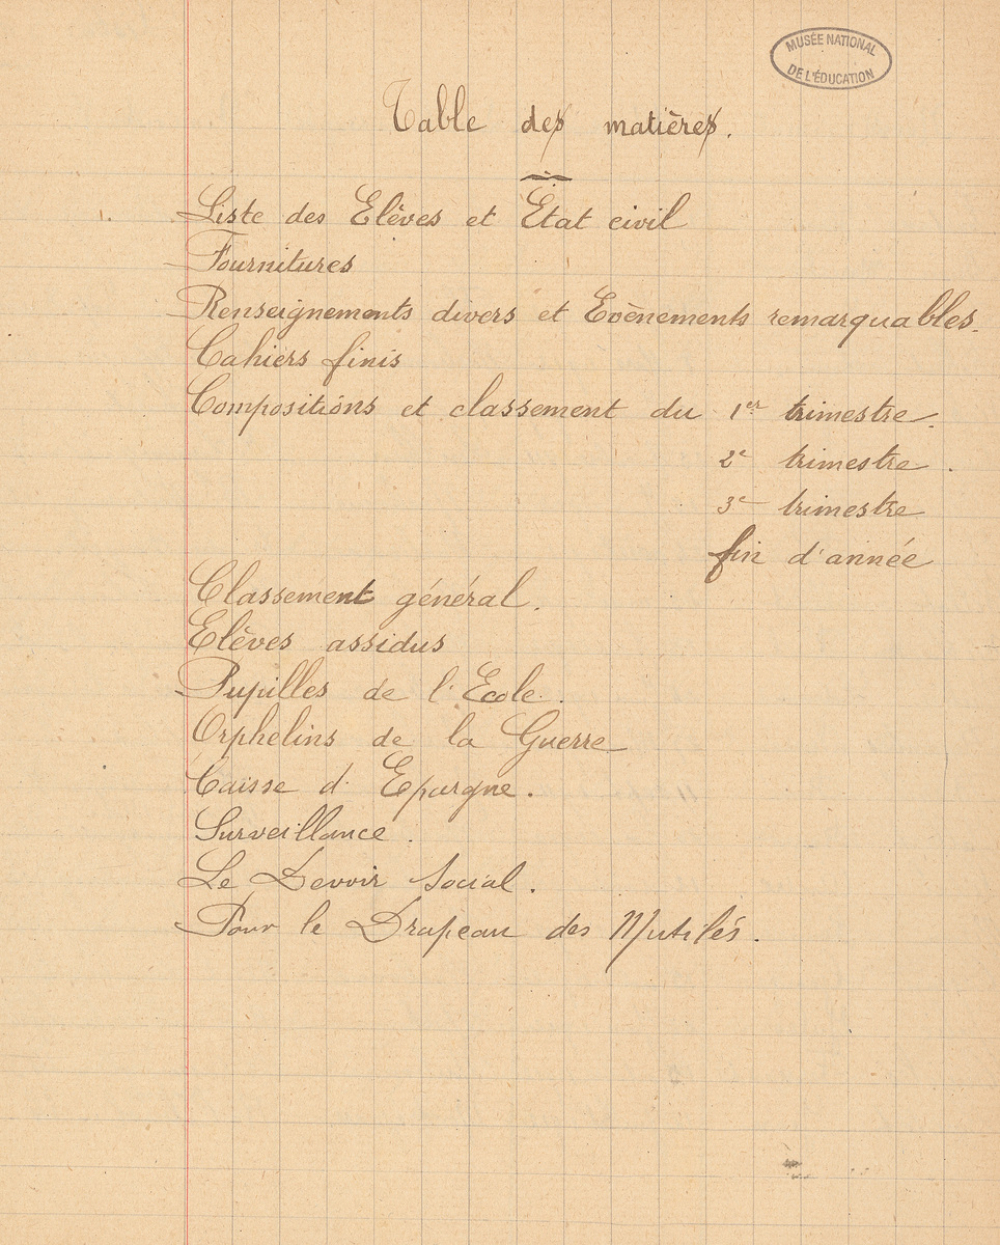 MUSÉE NATIONAL
DE L'ÉDUCATION
Table des matières.
Liste des Elèves et Etat civil
Fournitures
Renseignements divers et Evènements remarquables.
Cahiers finis
Compositions et classement du 1er trimestre.
2e trimestre.
3e trimestre
fin d'année
Classement général.
Elèves assidus
Pupilles de l'Ecole.
Orphelins de la Guerre
Caisse d'Epargne.
Surveillance.
Le Devoir Social.
Pour le Drapeau des Mutilés.